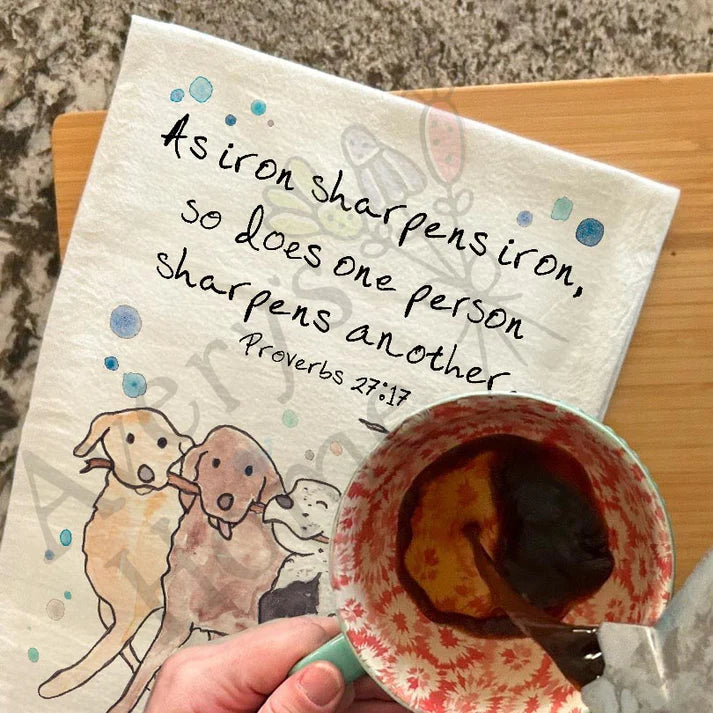 As iron sharpens iron,
so does one person
sharpens another.
Proverbs 27:17
Avery's
Home